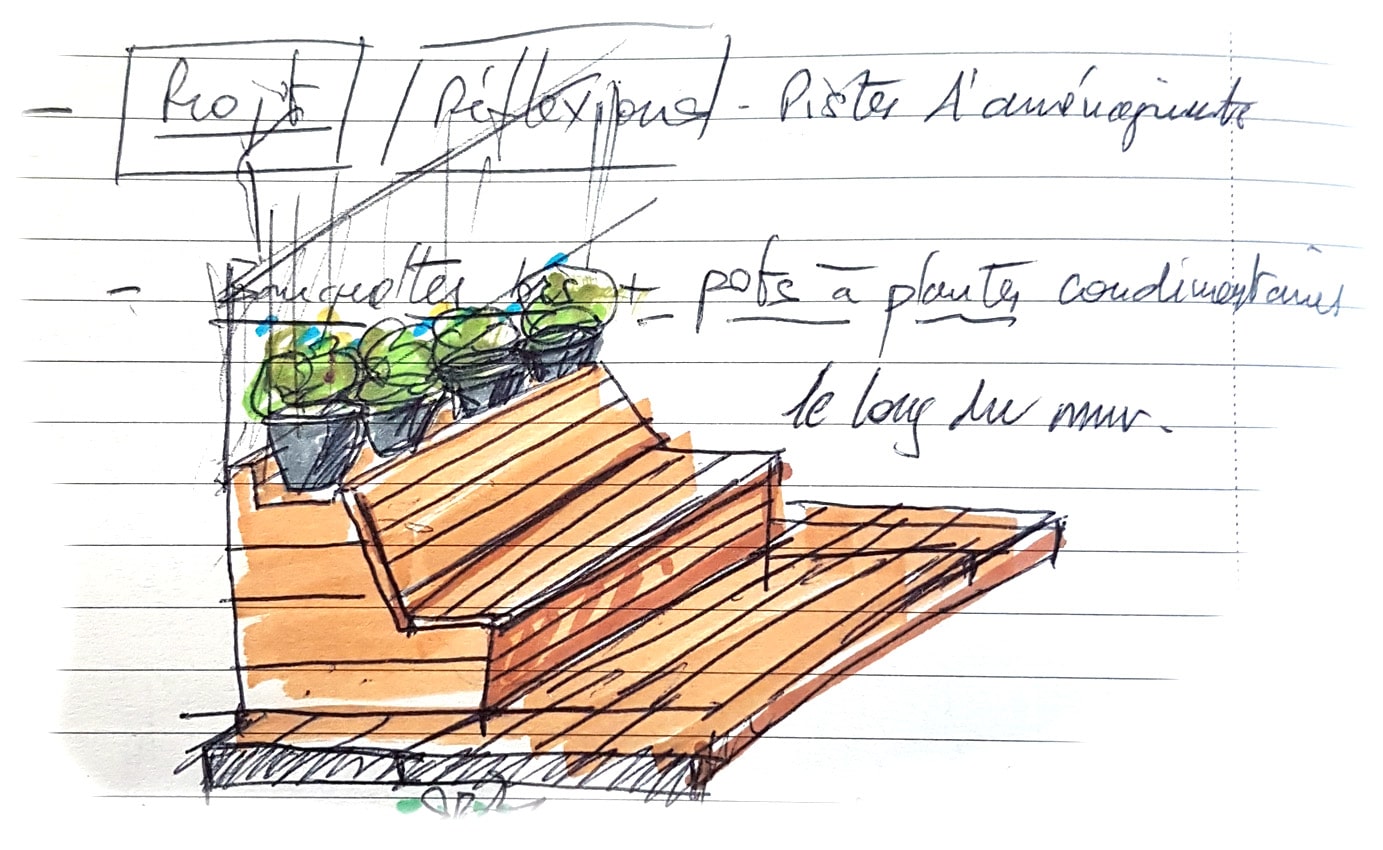 - Projets / Réflexions - Pistes d'aménagements
- banquettes bois + pots à plantes condimentaires
le long du mur.